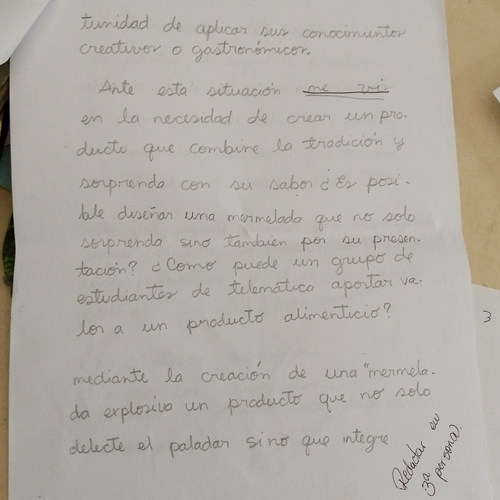 tunidad de aplicar sus conocimientos
creativos o gastronómicos.
Ante esta situación me vi
en la necesidad de crear un pro-
ducto que combine la tradición y
sorprenda con su sabor ¿Es posi-
ble diseñar una mermelada que no solo
sorprenda sino también por su presen-
tación? ¿Como puede un grupo de
estudiantes de telemática aportar va-
lor a un producto alimenticio?
mediante la creación de una "mermela-
da explosiva un producto que no solo
delecte el paladar sino que integre
Redactar en
3a persona.
3